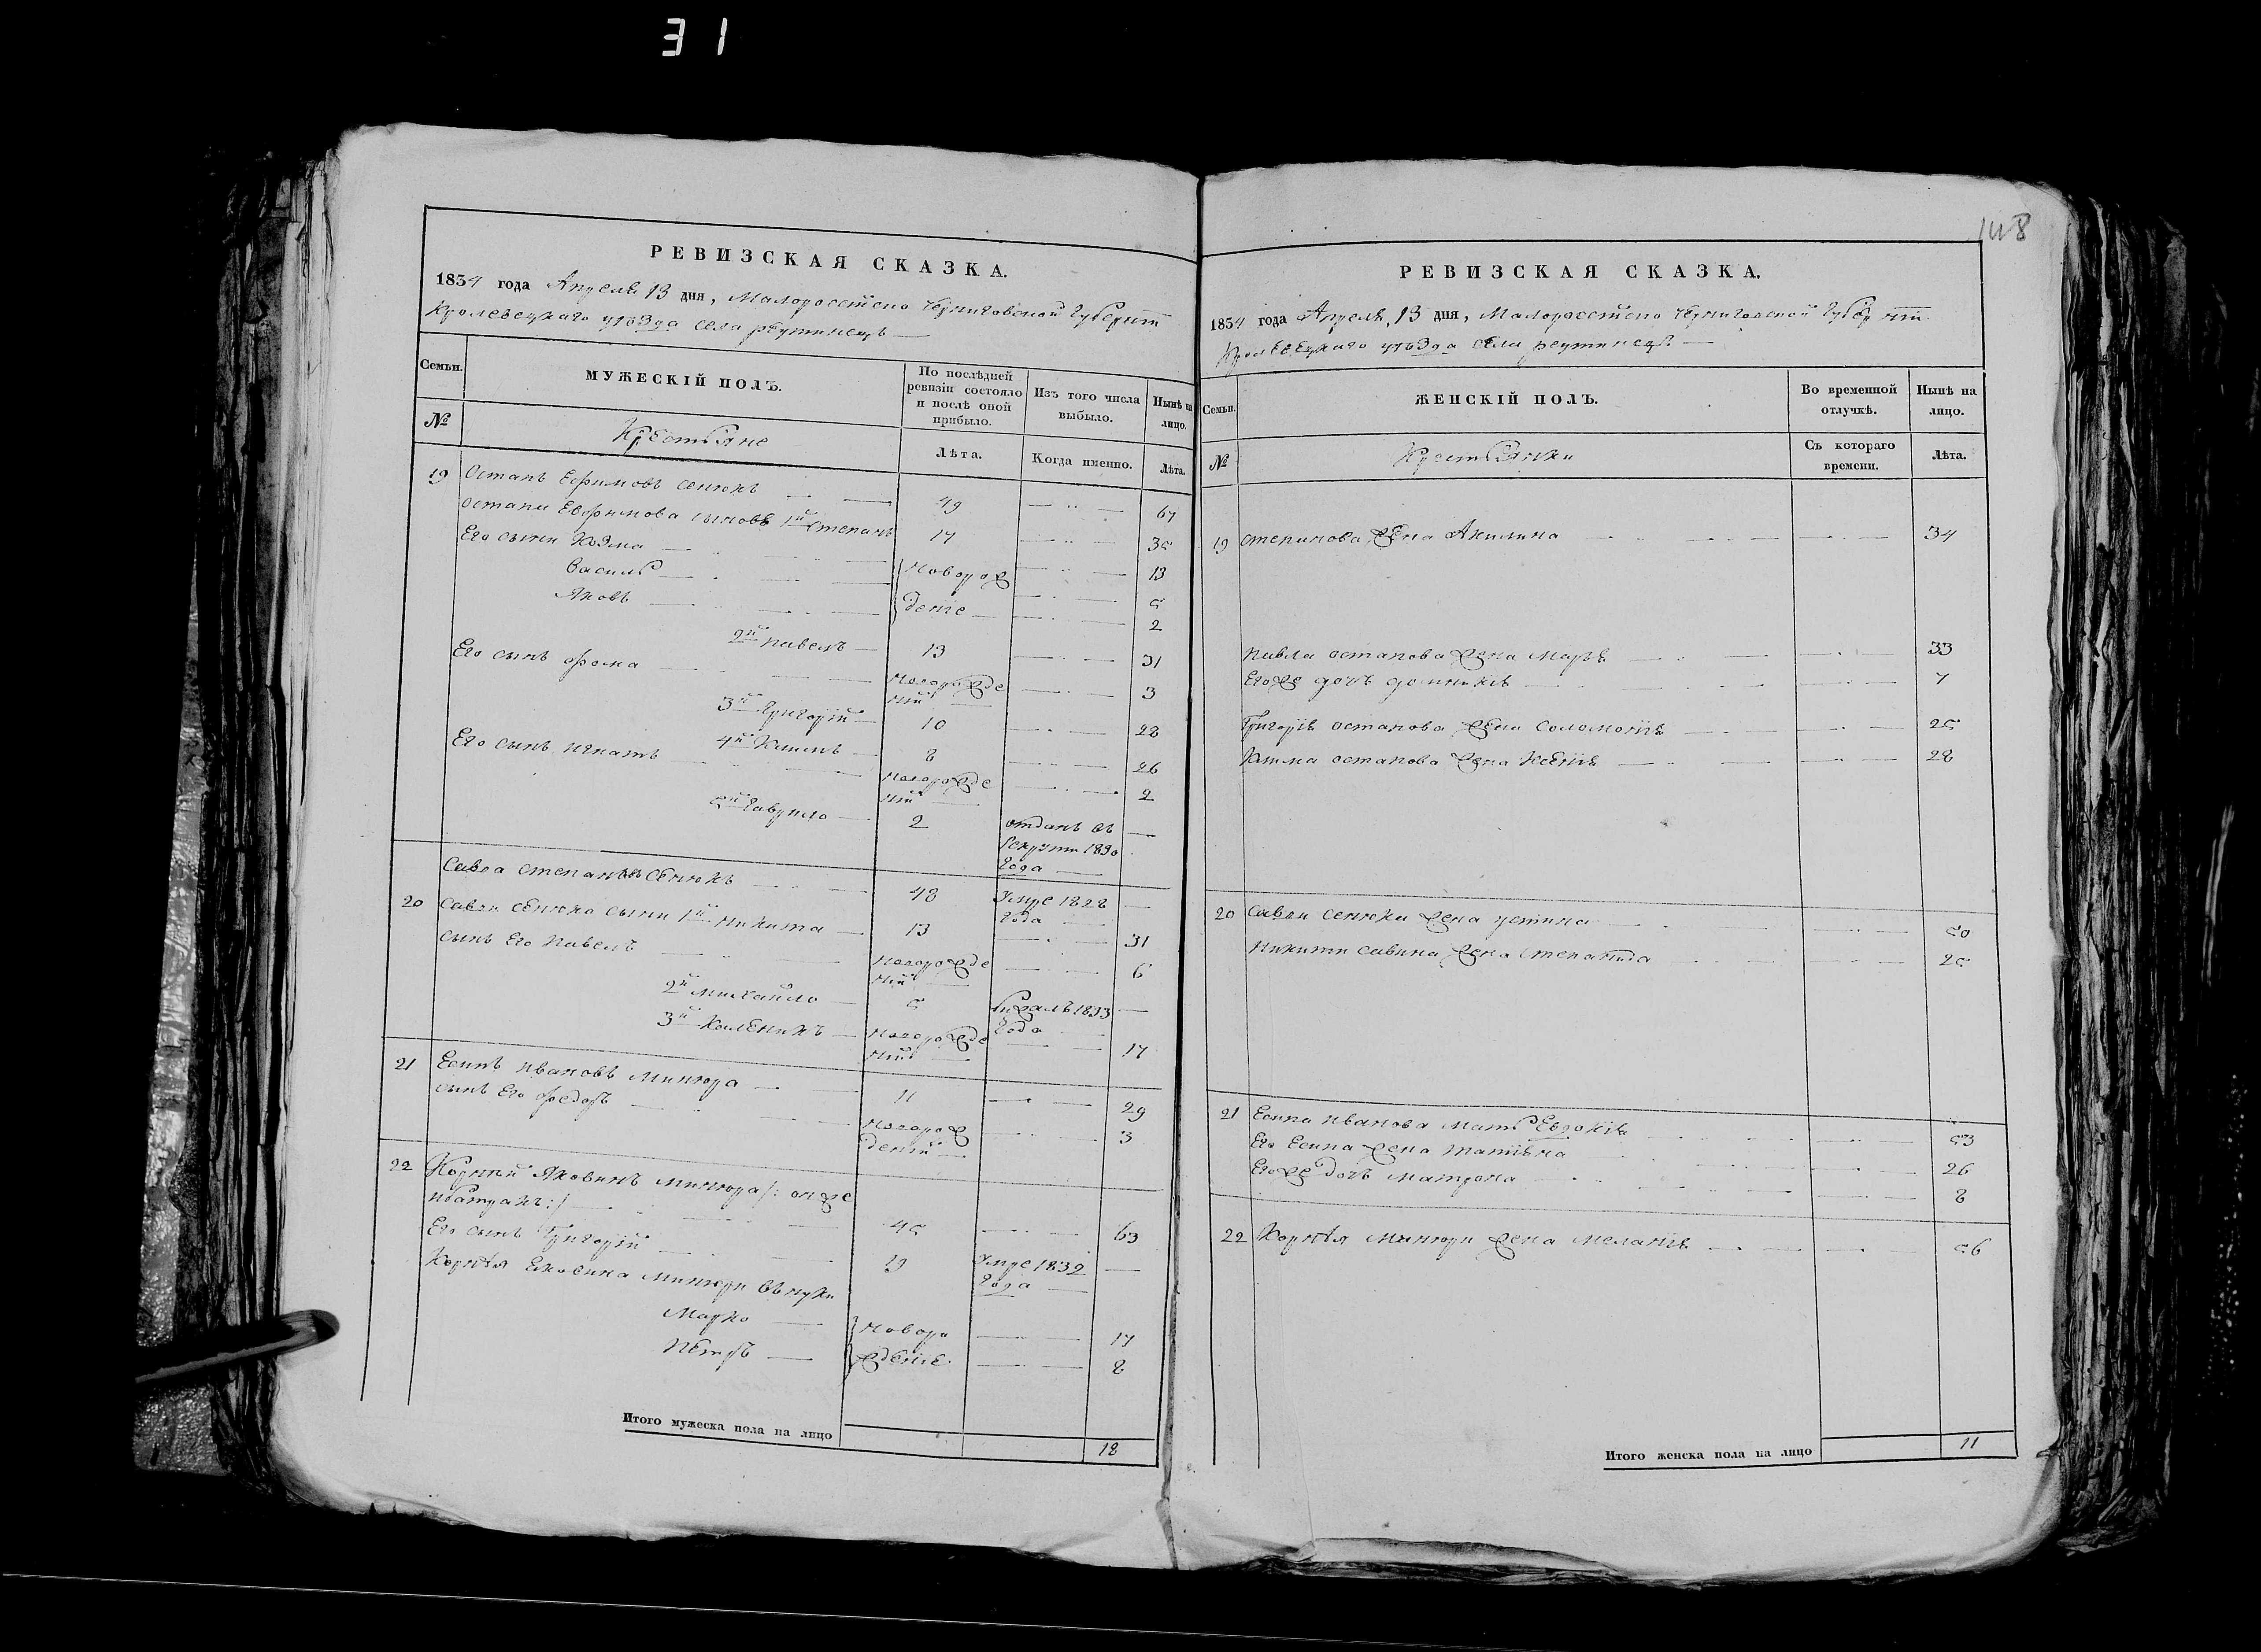 31
148
РЕВИЗСКАЯ СКАЗКА.
1834 года Апреля 13 дня, Малоросейско Черниговской Губернии
Кролевецкаго уѣзда села реутинецъ —
Семьи. МУЖЕСКІЙ ПОЛЪ. По послѣдней ревизіи состояло и послѣ оной прибыло. Изъ того числа выбыло. Нынѣ на лицо.
№ Крестьяне Лѣта. Когда именно. Лѣта.
19 Остапъ Ефимовъ Сенюкъ — 49 — 67
Остапа Ефимова сыновъ 1й Степанъ 17 — 35
Его сыни Козма — Новорож — 13
Василь — — 5
Яковъ — дение — — 2
2й павелъ — 13 — 31
Его сынъ фома — новорожде ний — 3
3й Григорій — 10 — 28
4й Климъ — 8 — 26
Его сынъ игнатъ новорожде ний — 2
5й Гаврило — 2 отданъ въ —
рекрути 1830
года —
Савва степановъ Сенюкъ — 48 Умре 1828 —
года
20 Савви сенюка сыни 1й никита — 13 — 31
сынъ Его павелъ новорожде ний — 6
2й михайло — 5 бежалъ 1833 —
года
3й Каленикъ — новорожде ний — 17
21 Есипъ ивановъ минюра — 11 — 29
сынъ Его федоръ новорож дений — 3
22 Корнѣй Яковинъ минюра /: онже
:/ — 45 — 63
Его сынъ Григорій — 19 Умре 1832 —
года —
Корнѣя Яковина минюри внуки
Марко — Новоро — 17
Петръ — ждение — 8
Итого мужеска пола на лицо 18
РЕВИЗСКАЯ СКАЗКА.
1834 года Апреля, 13 дня, Малоросейско Черниговской Губернии
Кролевецкаго уѣзда села реутинецъ —
Семьи. ЖЕНСКІЙ ПОЛЪ. Во временной отлучкѣ. Нынѣ на лицо.
№ Крестьянки Съ котораго времени. Лѣта.
19 степанова жена Акилина — 34
павла остапова жена марья — 33
Егоже дочъ домникія — 7
Григорія остапова жена соломонія — 25
Клима остапова жена Ксенія — 28
20 савви сенюка жена устина — 50
никити савина жена степанида 25
21 Есипа иванова мать Евдокія 53
Его Есипа жена татіяна 26
Егоже дочъ матрона 8
22 Корнѣя минюри жена меланія — 56
Итого женска пола на лицо 11